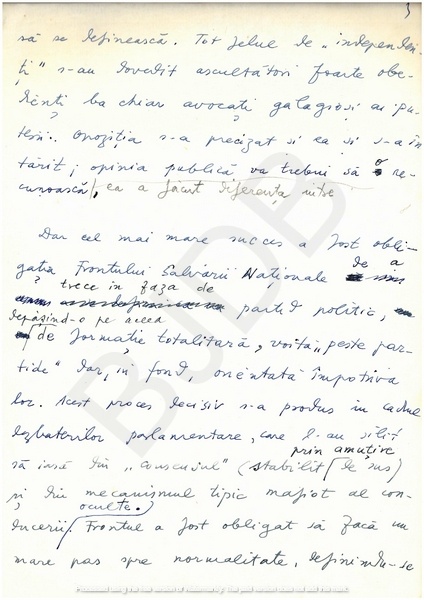 3
să se definească. Tot felul de „independen-
ți" s-au dovedit ascultători foarte obe-
dienți ba chiar avocați galagioși ai pu-
terii. Opoziția s-a precizat și ea și s-a în
tărit; opinia publică va trebui să o re-
cunoască, ea a făcut diferența între
Dar cel mai mare succes a fost obli-
gația Frontului Salvării Naționale de a
trece în faza de
partid politic,
depășind-o pe aceea
de formație totalitară, voită „peste par-
tide" dar, în fond, orientată împotriva
lor. Acest proces decisiv s-a produs în cadrul
dezbaterilor parlamentare, care l-au silit
prin amuțire
să iasă din „consensul" (stabilit de sus)
și din mecanismul tipic mafiot al con-
oculte.
ducerii. Frontul a fost obligat să facă un
mare pas spre normalitate, definindu-se
BJDB